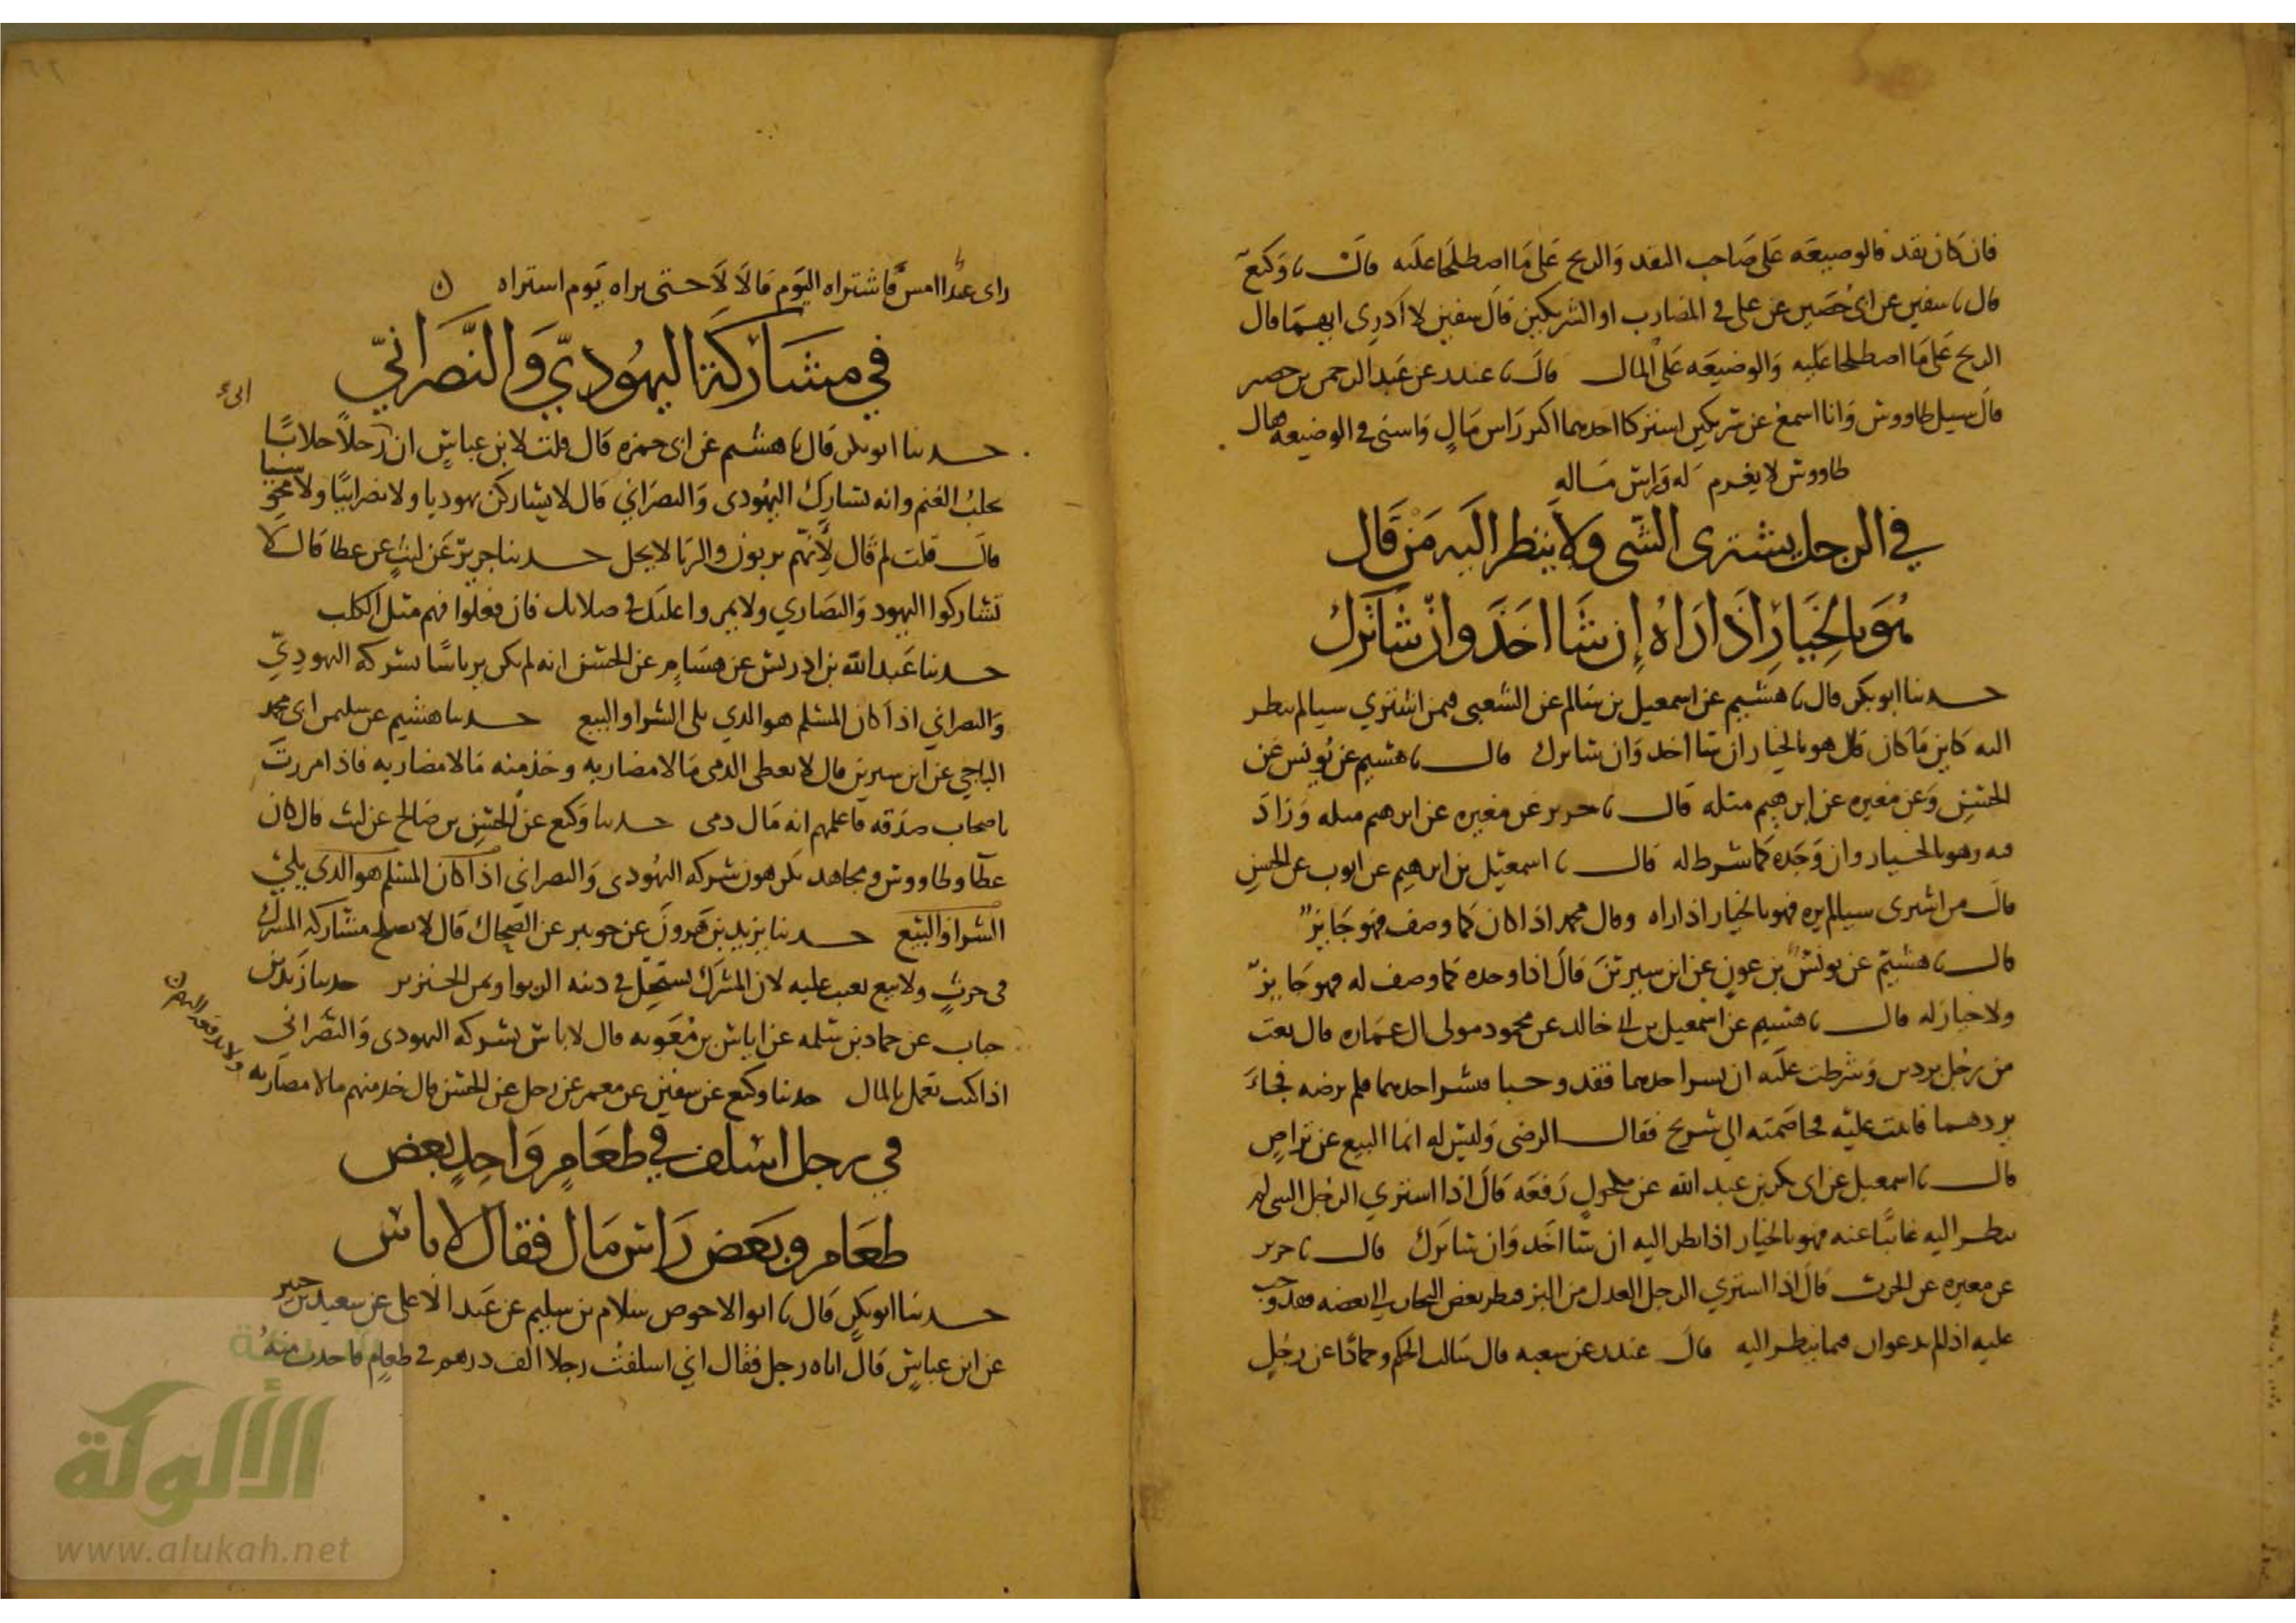 فان كان نقد فالوضيعه على صاحب النقد والربح على ما اصطلحا عليه قال نا وكيع
قال نا سفين عن ابي حصين عن علي في المضارب او الشريكين قال سفين لا ادري ايهما قال
الربح على ما اصطلحا عليه والوضيعه على المال قال نا غندر عن عبد الرحمن بن حصر
قال سيل طاووس وانا اسمع عن شريكين اشتركا احدهما اكبر راس مال في الوضيعه قال
طاووس لا يغرم له وراس ماله
في الرجل يشتري الشي ولا ينظر اليه من قال
هو بالخيار اذا راه إن شا اخذ وان شا ترك
حدثنا ابو بكر قال نا هشيم عن اسمعيل بن سالم عن الشعبي فيمن اشتري شيا لم ينظر
اليه كاين ما كان قال هو بالخيار ان شا اخذ وان شا ترك قال نا هشيم عن يونس عن
الحسن وعن مغيره عن إبرهيم مثله قال نا جرير عن مغيره عن ابرهيم مثله وزاد
فيه وهو بالخيار وان وجده كما شرط له قال نا اسمعيل بن ابرهيم عن ايوب عن الحسن
قال من اشترى شيا لم يره فهو بالخيار اذا راه وقال محمد اذا كان كما وصف فهو جايز
قال نا هشيم عن يونس بن عون عن ابن سيرين قال اذا وجده كما وصف له فهو جايز
ولا خيار له قال نا هشيم عن اسمعيل بن ابي خالد عن محمود مولى ال عماره قال بعت
من رجل بردين وشرطت عليه ان نشر احدهما فقد وجبا فنشر احدهما فلم يرضه فجاء
يردهما فابيت عليه فخاصمته الى شريح فقال الرضى وليس له انما البيع عن تراض
قال نا اسمعيل عن ابي بكر بن عبد الله عن مكحول رفعه قال اذا اشتري الرجل الشي لم
ينظر اليه غائبا عنه فهو بالخيار اذا نظر اليه ان شا اخذ وان شا ترك قال نا جرير
عن مغيره عن الحرث قال اذا اشتري الرجل العدل من البز فنظر بعض التجار الى بعضه فقد وجب
عليه اذا لم يدعوار فيما ينظر اليه قال غندر عن شعبه قال سالت الحكم وحمادا عن رجل
راى عبدا امس فاشتراه اليوم قالا لا حتى يراه يوم اشتراه ن
في مشاركة اليهودي والنصراني
حدثنا ابو بكر قال نا هشيم عن ابي حمزه قال قلت لابن عباس ان رجلا جلابا
يجلب الغنم وانه يشارك اليهودى والنصراني قال لا يشاركن يهوديا ولا نصرانيا ولا مجوسيا
قال قلت لم قال لأنهم يربون والربا لا يحل حدثنا جرير عن ليث عن عطا قال لا
تشاركوا اليهود والنصاري ولا يمروا عليك في صلاتك فان فعلوا فهم مثل الكلب
حدثنا عبد الله بن ادريس عن هشام عن الحسن انه لم يكن ير باسا بشركه اليهودي
والنصراني اذا كان المسلم هو الذي يلى الشرا والبيع حدثنا هشيم عن سليمن ابي محمد
الناجي عن ابن سيرين قال لا يعطى الذمى مالا مضاربه وخذ منه مالا مضاربه فاذا مررت
باصحاب صدقه فاعلمهم انه مال ذمى حدثنا وكيع عن الحسن بن صالح عن ليث قال كان
عطا وطاووس ومجاهد يكرهون شركه اليهودى والنصراني اذا كان المسلم هو الذي يلي
الشرا والبيع حدثنا يزيد بن هرون عن جويبر عن الضحاك قال لا تصلح مشاركه المشرك
في حرث ولا بيع بعيب عليه لان المشرك يستحل في دينه الربوا وثمن الخنزير حدثنا زيد بن
حباب عن حماد بن سلمه عن اياس بن معويه قال لا باس بشركه اليهودى والنصراني
اذا كنت تعمل بالمال حدثنا وكيع عن سفين عن معمر عن رجل عن الحسن قال خذ منهم مالا مضاربه
ولا تدفعه اليهم ن
في رجل اسلف في طعام واخذ بعض
طعام وبعض راس مال فقال لا باس
حدثنا ابو بكر قال نا ابو الاحوص سلام بن سليم عن عبد الاعلى عن سعيد بن جبير
عن ابن عباس قال اتاه رجل فقال اني اسلفت رجلا الف درهم في طعام فاخذت منه
الألوكة
www.alukah.net